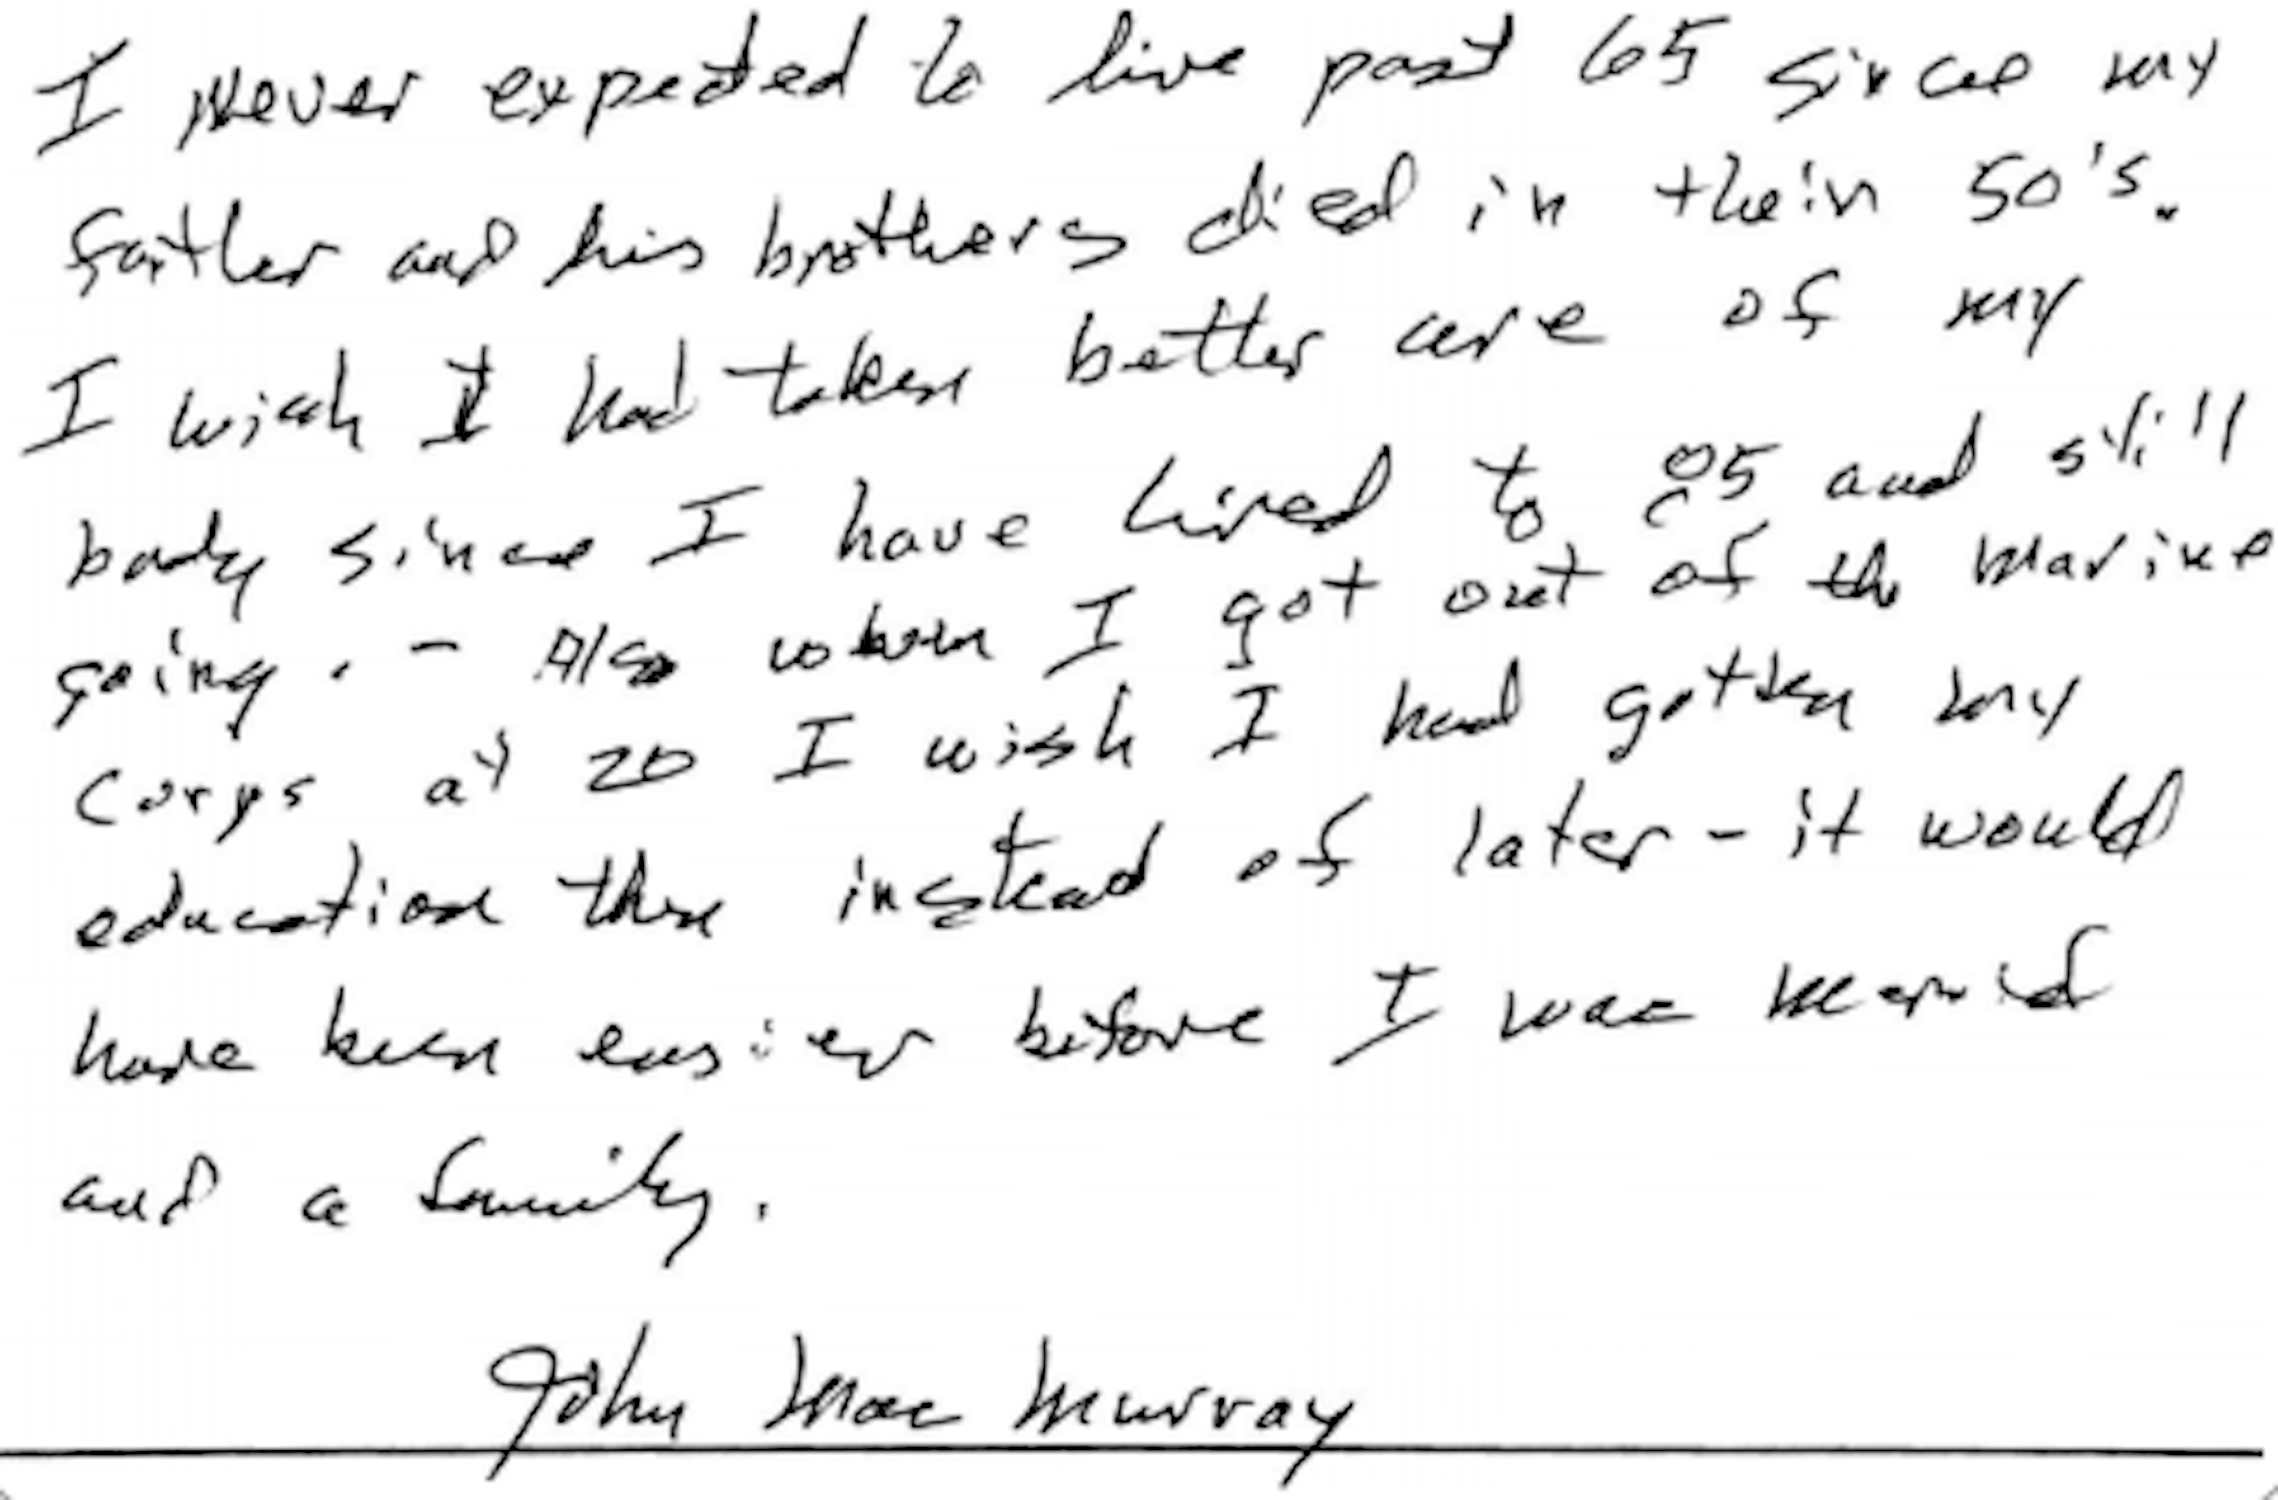 I Never expected to live past 65 since my
father and his brothers died in their 50's.
I wish I had taken better care of my
body since I have lived to 85 and still
going. - Also when I got out of the Marine
Corps at 20 I wish I had gotten my
education then instead of later - it would
have been easier before I was married
and a family.
John Mac Murray